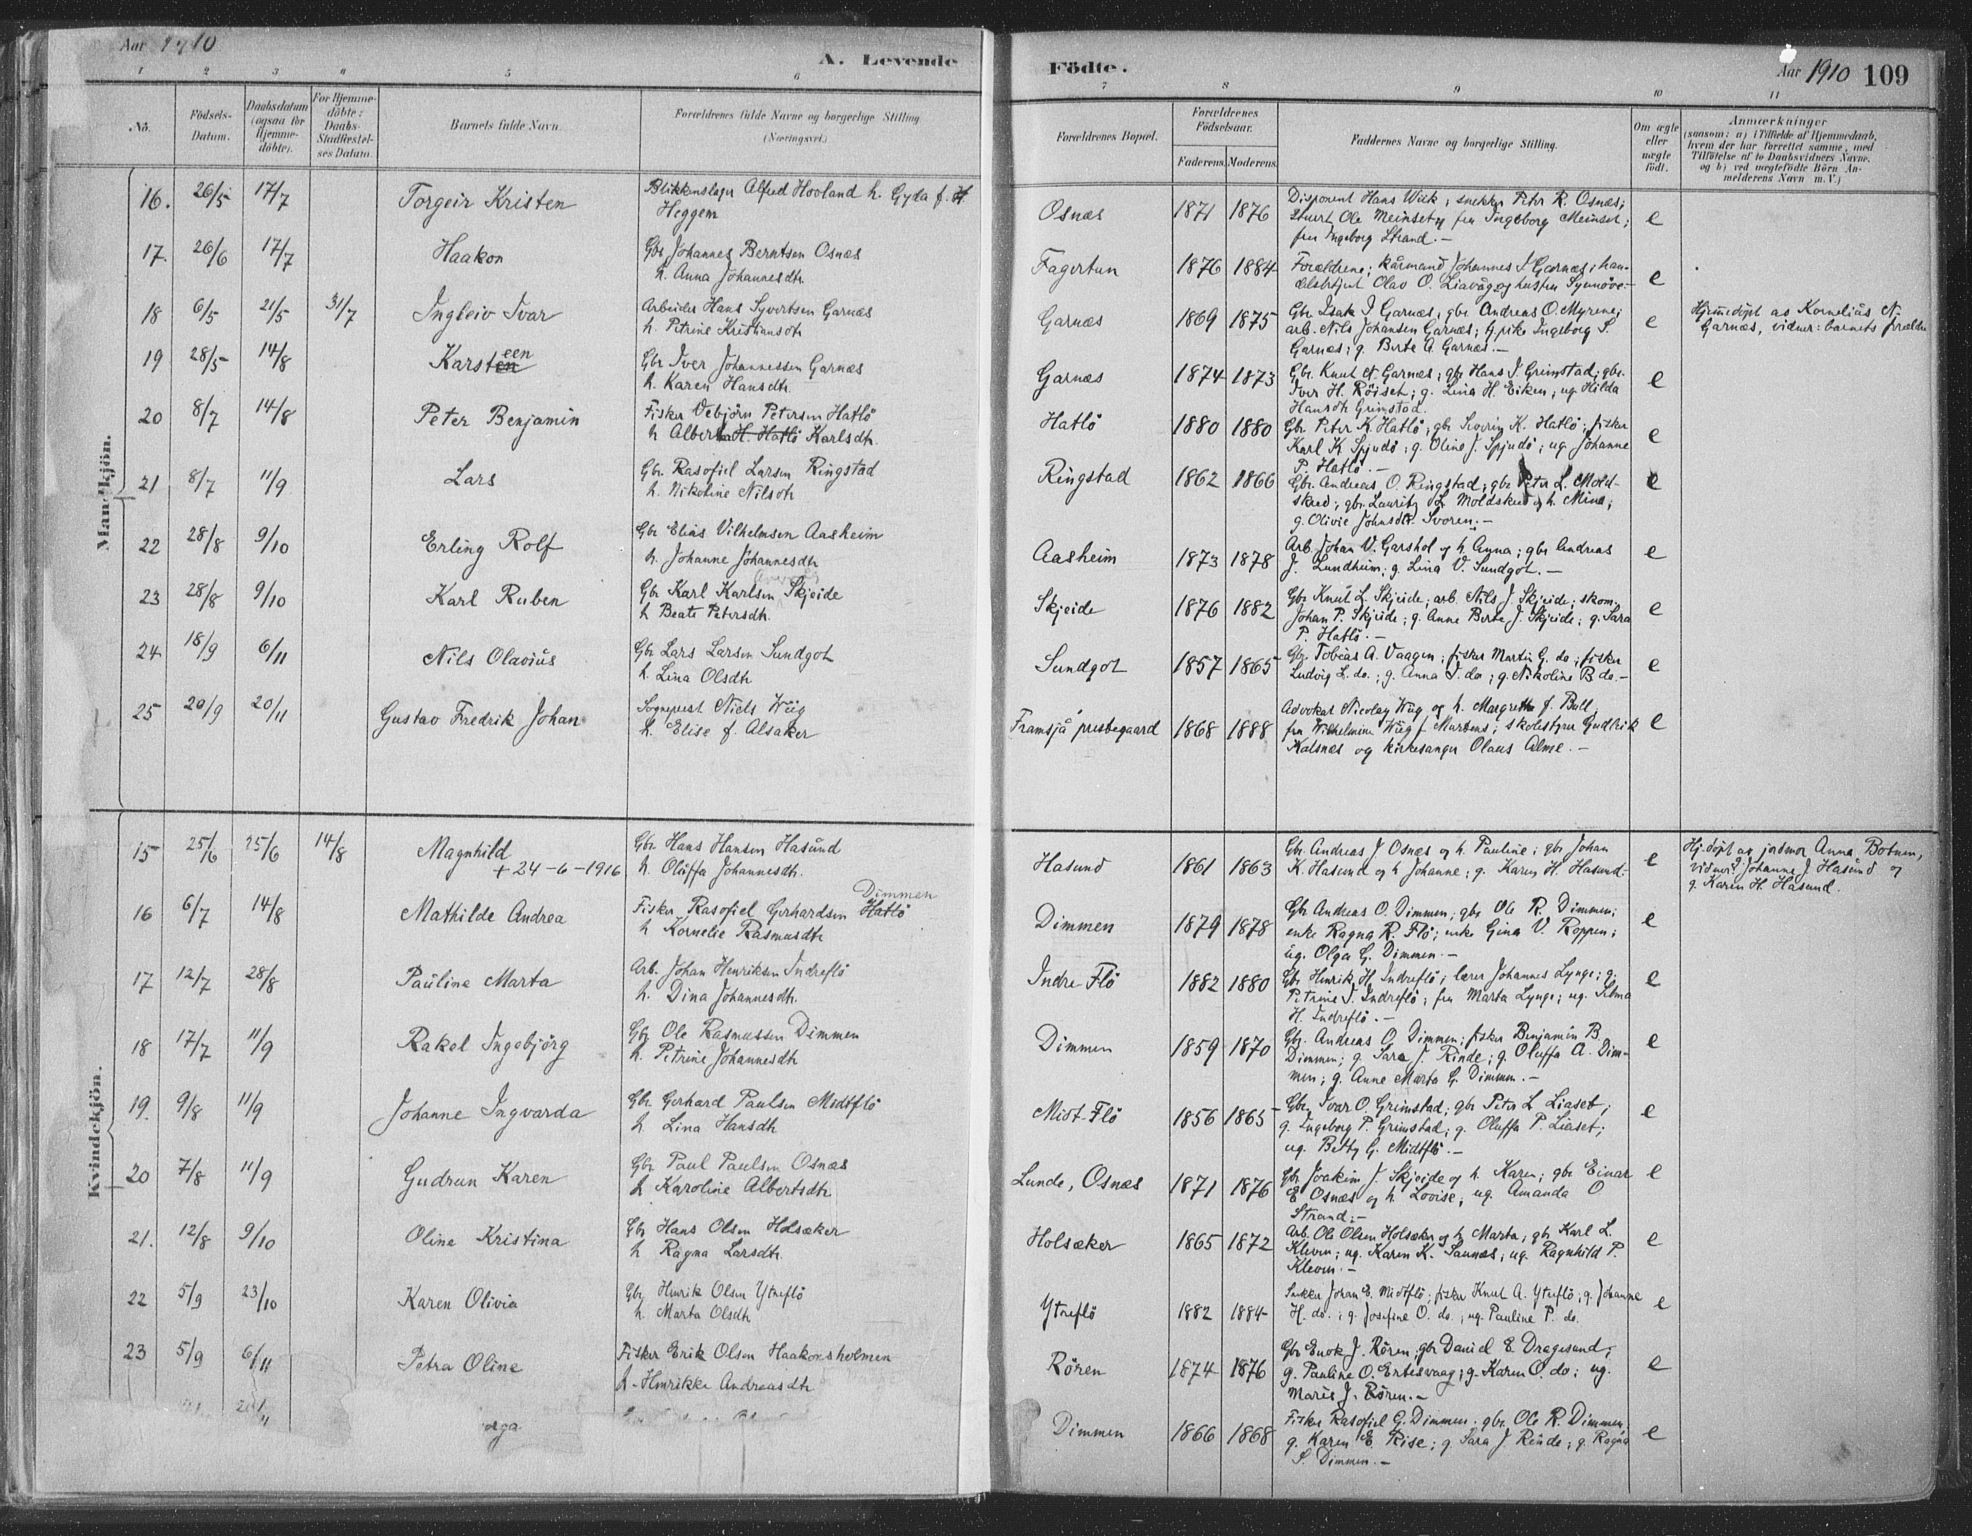 Aar 1910
A. Levende
Födte.
Aar 1910 109
1 2 3 4 5 6 7 8 9 10 11
No.
Födsels-
Datum.
Daabsdatum
(ogsaa for
Hjemme-
döbte).
For Hjemme-
döbte:
Daabs-
Stadfæstel-
ses Datum.
Barnets fulde Navn.
Forældrenes fulde Navne og borgerlige Stilling
(Næringsvei.)
Forældrenes Bopæl.
Forældrenes
Födselsaar.
Faderens. Moderens.
Faddernes Navne og borgerlige Stilling.
Om ægte
eller
uægte
födt.
Anmærkninger
(saasom: a) i Tilfælde af Hjemmedaab,
hvem der har forrettet samme, med
Tilföielse af to Daabsvidners Navne,
og b) ved uægtefödte Börn An-
melderens Navn m. V.)
Mandkjön.
16. 26/5 17/7 Torgeir Kristen Blikkenslager Alfred Hovland h. Gyda f.
Heggem
Osnæs 1871 1876 Disponent Hans Wiik; snekker Peter R. Osnæs;
stuert Ole Meinset og fru Ingeborg Meinset;
fru Ingeborg Strand. — e
17. 26/6 17/7 Haakon Gbr Johannes Berntsen Osnæs
h. Anna Johannesdtr.
Fagertun 1876 1884 Forældrene; kårmand Johannes J Garnæs; han-
delsbetjent Olav O. Liavåg og hustru Synnöve.— e
18 6/5 21/5 31/7 Ingleiv Ivar Arbeider Hans Syvertsen Garnæs
h. Petrine Kristiansdtr
Garnæs 1869 1875 Gbr Isak I Garnæs; gbr Andreas O. Myrene;
arb. Nils Johansen Garnæs; Gpike Ingeborg S.
Garnæs; g. Berte A Garnæs.— e
Hjemmedöpt av Kornelius N.
Garnæs, vidner: barnets forældre
19 28/5 14/8 Karsten een Gbr Iver Johannessen Garnæs
h. Karen Hansdtr.
Garnæs 1874 1873 Gbr. Knut N. Garnæs; gbr Hans I Grimstad; gbr.
Iver H. Röiset; g. Lina H. Eiken; ug. Hilda
Hansdtr Grimstad. e
20 8/7 14/8 Peter Benjamin Fisker Vebjörn Petersen Hatlö
h Alberta H. Hatlö Karlsdtr.
Hatlö 1880 1880 Gbr Peter K. Hatlö; gbr Severin K. Hatlö; fisker
Karl K Spjudö; g. Oline J. Spjudö; ug. Johanne
P. Hatlö.— e
21 8/7 11/9 Lars Gbr. Rasofiel Larsen Ringstad
h. Nikoline Nilsdtr
Ringstad 1862 1866 Gbr. Andreas O. Ringstad; gbr Peter L. Mold-
skred; gbr. Lauritz L Moldskred og h. Mina;
g. Olivie Johnsdtr. Svoren.— e
22 28/8 9/10 Erling Rolf Gbr Elias Vilhelmsen Aasheim
h. Johanne Johannesdtr
Aasheim 1873 1878 Arb. Johan V. Garshol og h Anna; gbr Andreas
J. Lundheim; g. Lina V. Sundgot.— e
23 28/8 9/10 Karl Ruben Gbr Karl Karlsen Skjeide
h Beate Petersdtr.
Skjeide 1876 1882 Gbr Knut L. Skjeide; arb. Nils J Skjeide; skom.
Johan P. Skjeide; g. Anne Berte J. Skjeide; g. Sara
P. Hatlö.— e
24 18/9 6/11 Nils Olavius Gbr Lars Larsen Sundgot
h. Lina Olsdtr
Sundgot 1857 1865 Gbr. Tobias A. Vaagen; fisker Martin G. do; fisker
Ludvig L. do.; g. Anna I. do; g. Nikoline B do.— e
25 20/9 20/11 Gustav Fredrik Johan Sogneprest Niels Wiig
h. Elise f. Alsaker
Framsjå prestegaard 1868 1888 Advokat Nicolay Wiig og h. Margrethe f. Bull,
fru Wilhelmine Wiig f Martens; skolestyrer Gudleik
Kalsnæs og kirkesanger Olaus Alme.— e
Kvindekjön.
15 25/6 25/6 14/8 Magnhild
+ 24-6-1916
Gbr Hans Hansen Hasund
h. Oluffa Johannesdtr.
Hasund 1861 1863 Gbr. Andreas J Osnæs og h. Pauline; gbr Johan
K. Hasund og h Johanne; g. Karen H. Hasund. e
Hj.döpt av jordmor Anna Botnen,
vidner: Johanne J. Hasund og
g. Karen H. Hasund.
16 6/7 14/8 Mathilde Andrea Fisker Rasofiel Gerhardsen Hatlö Dimmen
h Kornelie Rasmusdtr
Dimmen 1879 1878 Gbr Andreas O. Dimmen; gbr Ole R. Dimmen;
enke Ragna R. Flö; enke Gina V. Roppen;
ug. Olga G. Dimmen.— e
17 12/7 28/8 Pauline Marta Arb. Johan Henriksen Indreflö
h. Dina Johannesdtr.
Indre Flö 1882 1880 Gbr Henrik H Indreflö; lærer Johannes Lynge; g.
Petrine I. Indreflö; fru Marta Lynge; ug. Selma
H. Indreflö.— e
18 17/7 11/9 Rakel Ingebjörg Gbr Ole Rasmussen Dimmen
h. Petrine Johannesdtr
Dimmen 1859 1870 Gbr. Andreas O Dimmen; fisker Benjamin B
Dimmen; g. Sara J. Rinde; g. Oluffa A. Dim-
men; g. Anne Marta G. Dimmen.— e
19. 9/8 11/9 Johanne Ingvarda Gbr Gerhard Paulsen Midtflö
h. Lina Hansdtr
Midt-Flö 1856 1865 Gbr Ivar O. Grimstad; gbr Peter L Liaset;
g. Ingeborg P. Grimstad; g. Oluffa P. Liaset;
ug. Betty G. Midtflö.— e
20 7/8 11/9 Gudrun Karen Gbr Paul Paulsen Osnæs
h Karoline Albertsdtr
Lunde, Osnæs 1871 1876 Gbr Joakim J. Skjeide og h. Karen; gbr Einar
E Osnæs og h. Lovise; ug. Amanda O
Strand.— e
21. 12/8 9/10 Oline Kristina Gbr Hans Olsen Holsæker
h Ragna Larsdtr.
Holsæker 1865 1872 Arb. Ole Olsen Holsæker og h Marta; gbr Karl L.
Kleven; ug. Karen K. Saunæs; ug. Ragnhild P.
Kleven.— e
22 5/9 23/10 Karen Olivia Gbr Henrik Olsen Ytreflö
h. Marta Olsdtr
Ytreflö 1882 1884 Snekker Johan E. Midtflö; fisker Knut A. Ytreflö; g. Johanne
H. do.; g. Josefine O. do.; ug. Pauline P. do. e
23 5/9 6/11 Petra Oline Fisker Erik Olsen Haakonsholmen
h. Henrikke Andreasdtr
Rören 1874 1876 Gbr Enok J. Rören; gbr Daniel E. Dragesund;
g. Pauline O. Ertesvaag; g. Karen O. do; ug.
Marie J. Rören.— e
Dimmen 1866 1868 Fisker Rasofiel G. Dimmen; gbr. Ole R. Dimmen;
g. Karen E. Rise; g. Sara J Rinde; g. Ragna
S. Dimmen.— e